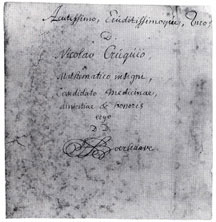 Acutissimo, Eruditissimoque, Viro,
D
Nicolao Cruquio
Mathematico insigni,
candidato Medicinae,
amicitiae & honoris
ergo
D D
Boerhaave